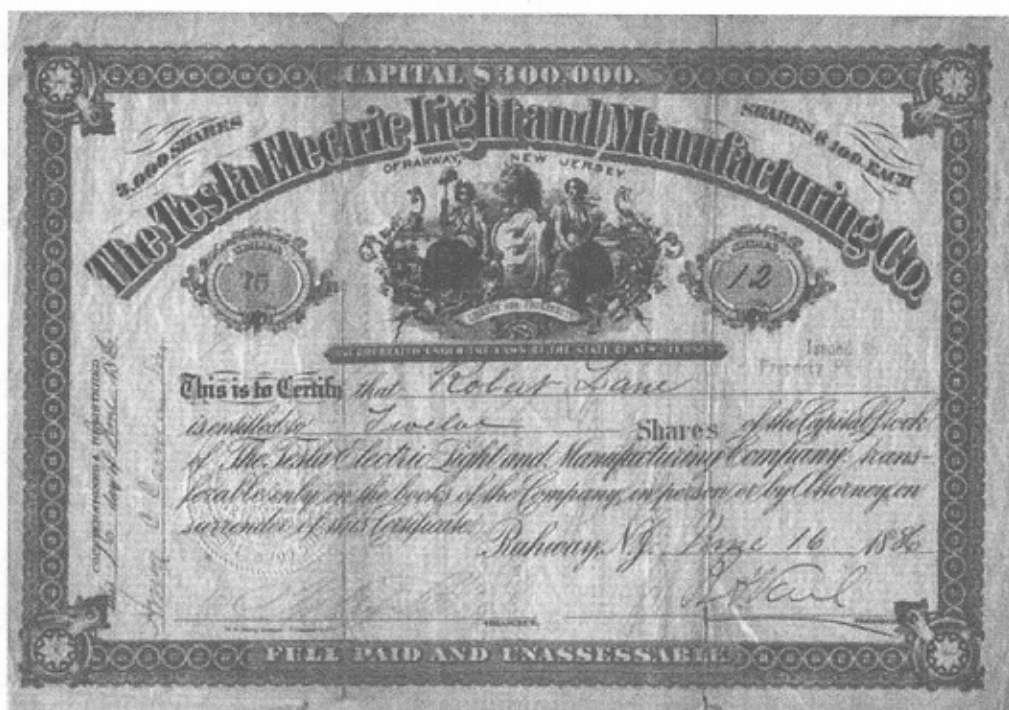 CAPITAL $300.000.
3.000 SHARES
SHARES $100 EACH
The Tesla Electric Light and Manufacturing Co.
OF RAHWAY, NEW JERSEY
75
12
INCORPORATED UNDER THE LAWS OF THE STATE OF NEW JERSEY
Issued
Property
This is to Certify that Robert Lane
is entitled to Twelve Shares of the Capital Stock
of The Tesla Electric Light and Manufacturing Company trans-
ferable only on the books of the Company, in person or by Attorney, on
surrender of this Certificate.
Rahway, N.J. June 16 1886
TREASURER.
FULL PAID AND UNASSESSABLE
COUNTERSIGNED & REGISTERED
this 16 day of June 1886